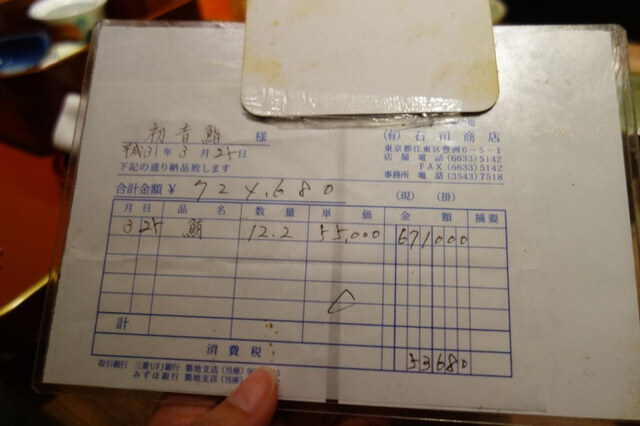 初音鮨 様
平成31年3月25日
下記の通り納品致します
(有)石司商店
東京都江東区豊洲6-5-1
店舗 電話 (6633)5142
FAX (6633)5142
事務所 電話 (3543)7518
合計金額 ¥ 724,680
(現) (掛)
月 日 品名 数量 単価 金額 摘要
3 25 鮪 12.2 55,000 671000
計
消費税 53680
取引銀行 三菱UFJ銀行 築地支店(当座)
みずほ銀行 築地支店(当座)